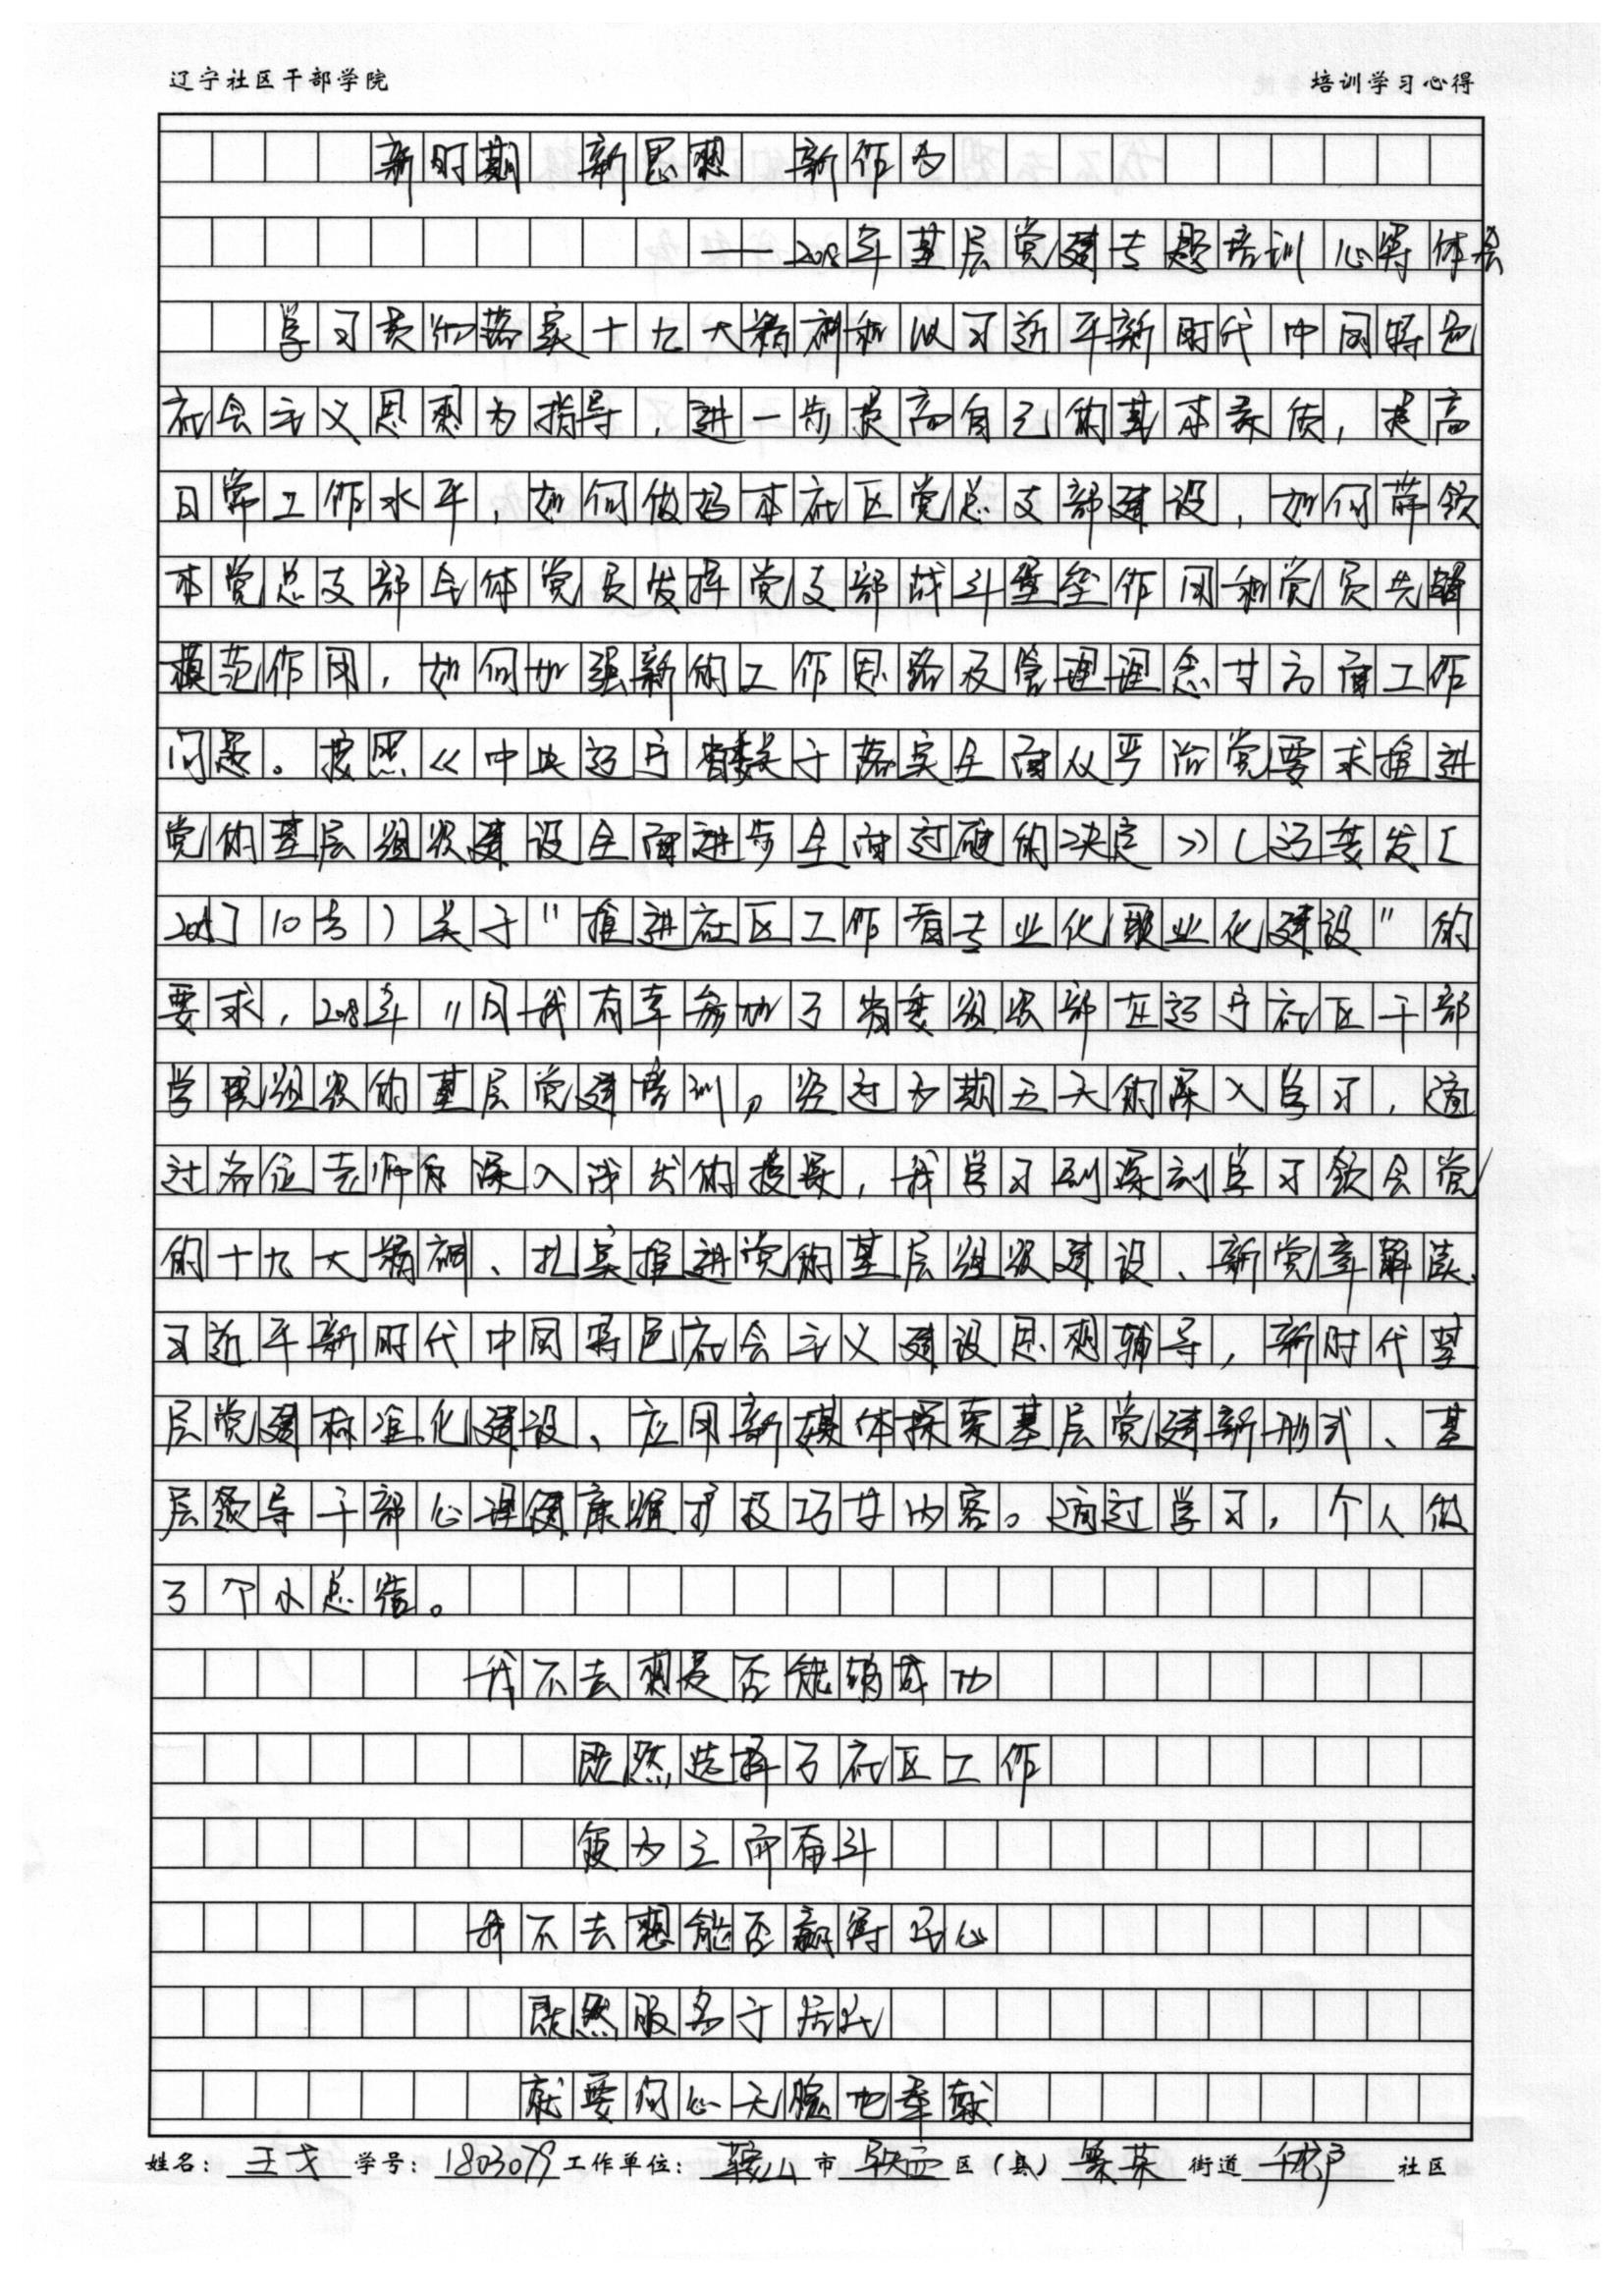 辽宁社区干部学院 培训学习心得
新时期 新思想 新作为
——2018年基层党建专题培训心得体会
学习贯彻落实十九大精神和以习近平新时代中国特色
社会主义思想为指导,进一步提高自己的基本素质,提高
日常工作水平,如何做好本社区党总支部建设,如何带领
本党总支部全体党员发挥党支部战斗堡垒作用和党员先锋
模范作用,如何加强新的工作思路及管理理念等方面工作
问题。按照《中共辽宁省委关于落实全面从严治党要求推进
党的基层组织建设全面进步全面过硬的决定》(辽委发[
2017]10号)关于"推进社区工作者专业化职业化建设"的
要求,2018年11月我有幸参加了省委组织部在辽宁社区干部
学院组织的基层党建培训,经过为期五天的深入学习,通
过各位老师的深入浅出的授课,我学习到深刻学习领会党
的十九大精神、扎实推进党的基层组织建设、新党章解读、
习近平新时代中国特色社会主义建设思想辅导,新时代基
层党建标准化建设、应用新媒体探索基层党建新形式、基
层领导干部心理健康维护技巧等内容。通过学习,个人做
了个小总结。
我不去想是否能够成功
既然选择了社区工作
便为之而奋斗
我不去想能否赢得民心
既然服务于居民
就要问心无愧地奉献
姓名: 王 学号: 1803079 工作单位: 鞍山 市 铁西 区(县) 街道 社区